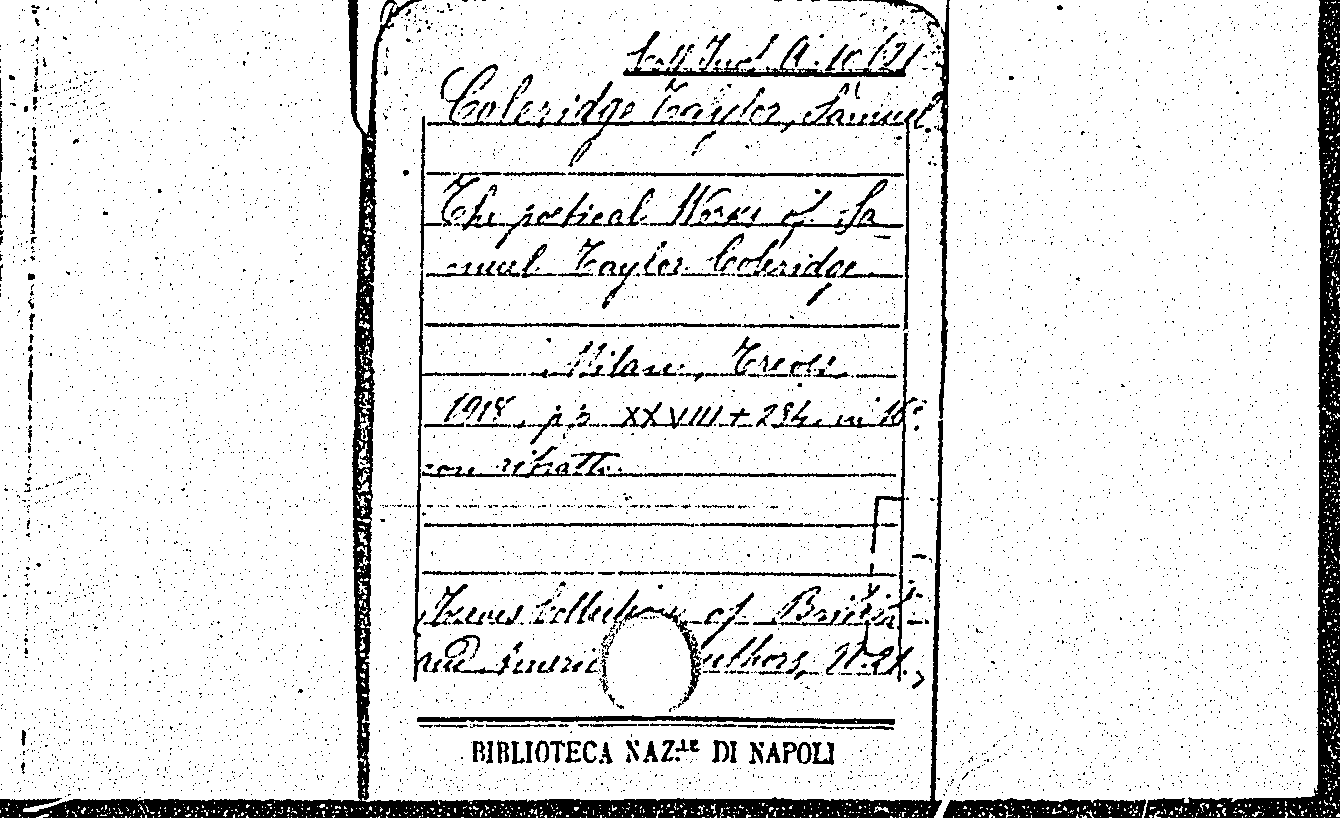 Coll. Ingl. A. 10 (21
Coleridge Taylor, Samuel
The poetical Works of Sa-
muel Taylor Coleridge.
Milan, Treves
1918, pp. XXVIII + 284. in 16º
con ritratto.
Treves Collection of British
and Ameri uthors, N. 21.
BIBLIOTECA NAZ.LE DI NAPOLI